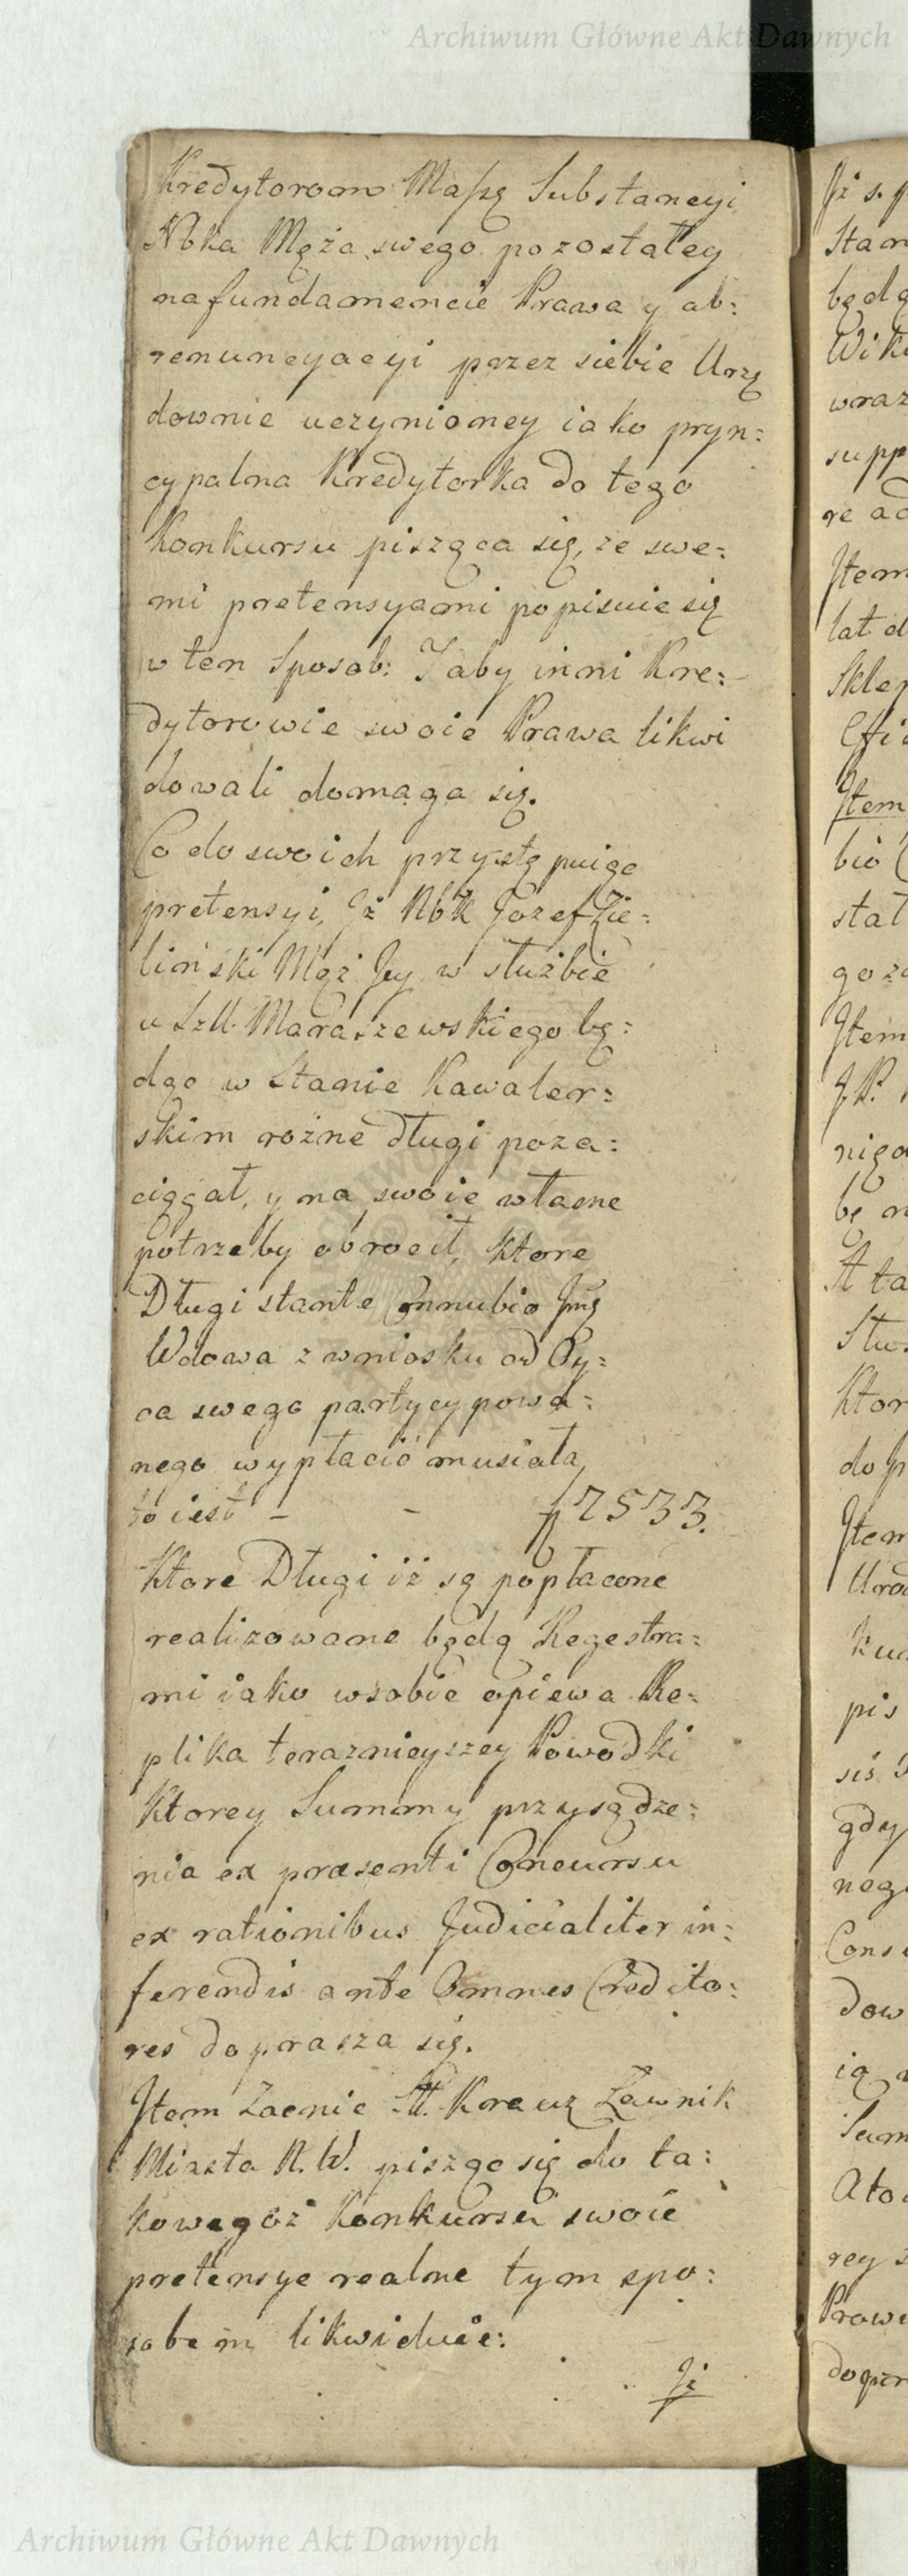 Archiwum Główne Akt Dawnych
Kredytorom Massę Substancyi
Nbka Męża swego pozostałey
na fundamencie Prawa y ab:
renuncyacyi przez siebie Urzę
downie uczynioney iako pryn:
cypalna Kredytorka do tego
Konkursu pisząca się, ze swe:
mi pretensyami popisuie się
w ten Sposob: Jaby inni Kre:
dytorowie swoie Prawa likwi
dowali domaga się.
Co do swoich przystępuiąc
pretensyi, Jż Nbk Jozef Zie:
liński Mąż Jey w służbie
u Szll. Maraszewskiego bę:
dąc w Stanie Kawaler:
skim rożne długi poza:
ciągał, y na swoie własne
potrzeby obrocił, ktore
Długi stante Connubio Jmę
Wdowa z wniosku od Oy:
ca swego partycypowa:
nego wypłacić musiała
to iest - - f 7533.
Ktore Długi iż są popłacone
realizowane będą Regestra:
mi iako wsobie opiewa Re:
plika teraznieyszey Powodki
Ktorey Summy przysądze:
nia ex præsenti Concursu
ex rationibus Judicialiter in:
ferendis ante Omnes Credito:
res doprasza się.
Jtem Zacnie Sł. Kreuz Ławnik
Miasta N. W. pisząc się do ta:
kowegoż Konkursu swoie
pretensye realne tym spo:
sobem likwiduie:
Jż
Jż s. p
Stan
będą
Wik
wraz
supp
re ad
Jtem
lat d
Skle
Jtem
bio
stał
go z
Jtem
J. P.
nięd
bę n
A ta
Stu
Ktor
do p
Jtem
Urod
kun
pis
siś
gdy
neg
Cons
dow
ią
Sum
Ato
rey
Praw
dopr
Archiwum Główne Akt Dawnych